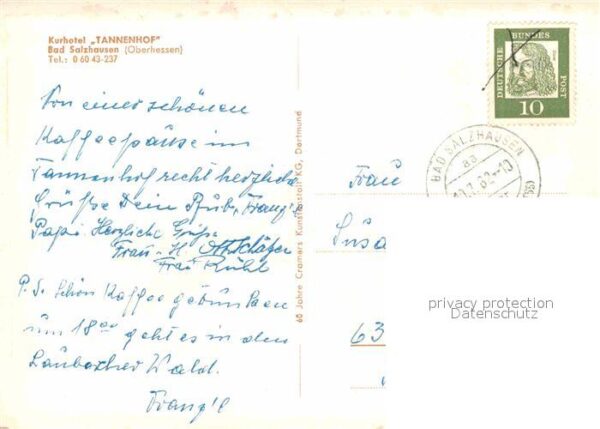 Kurhotel „TANNENHOF"
Bad Salzhausen (Oberhessen)
Tel.: 0 60 43-237
Von einer schönen
Kaffeepause im
Tannenhof recht herzliche
Grüße Dein Bub, Franz'l
Papi. Herzliche Grüße
Frau H. Schäfer
Frau Rühl
P.S. Schön Kaffee getrunken
um 18 00 geht es in den
Laubacher Wald.
Franz'l
60 Jahre Cramers Kunstanstalt KG, Dortmund
DEUTSCHE BUNDESPOST
10
BAD SALZHAUSEN
aa
Frau
Susa
63
privacy protection
Datenschutz